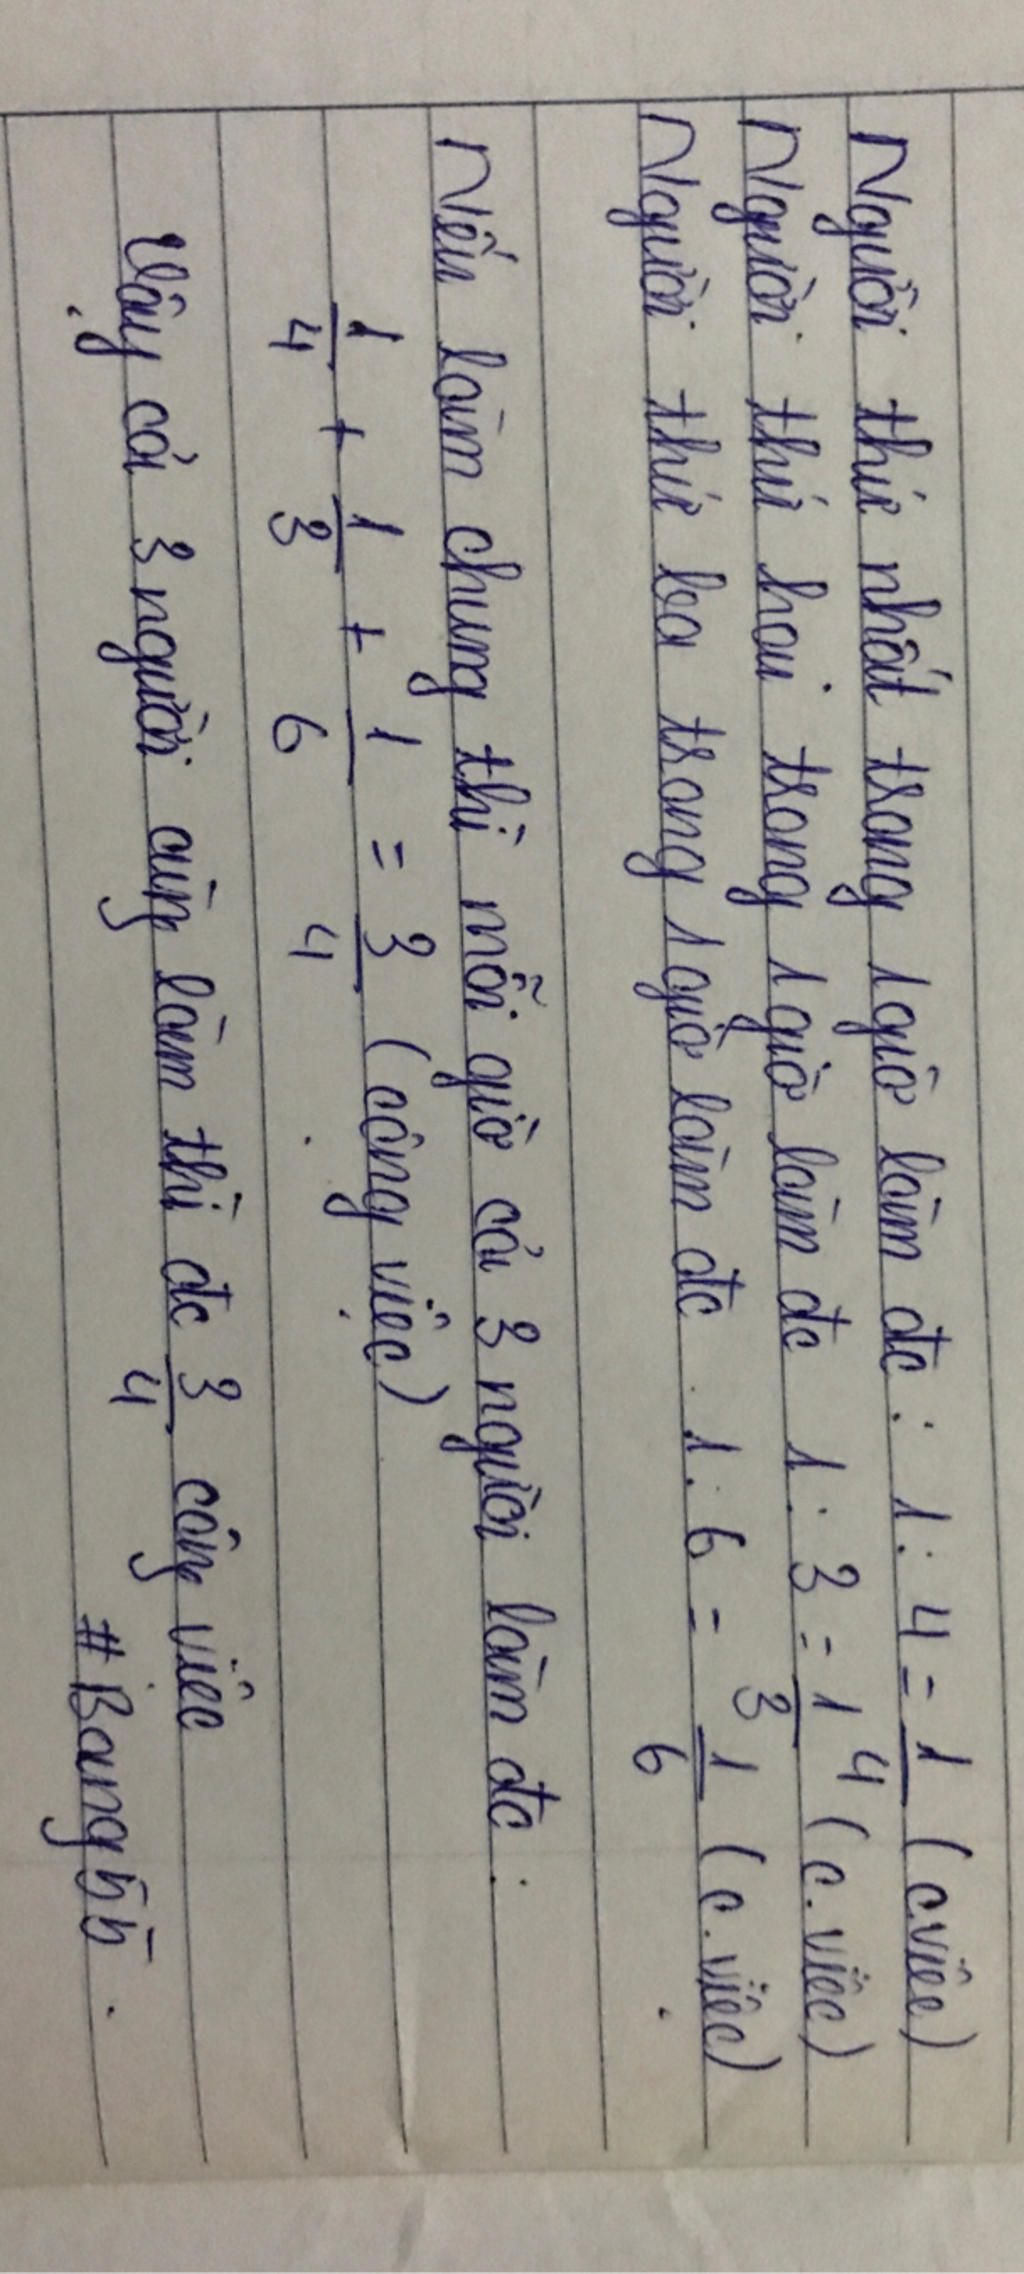 Người thứ nhất trong 1 giờ làm đc : 1 : 4 = 1/4 (c.việc)
Người thứ hai trong 1 giờ làm đc 1 : 3 = 1/3 (c.việc)
Người thứ ba trong 1 giờ làm đc 1 : 6 = 1/6 (c.việc)
Nếu làm chung thì mỗi giờ cả 3 người làm đc :
1/4 + 1/3 + 1/6 = 3/4 (công việc)
Vậy cả 3 người cùng làm thì đc 3/4 công việc
#Bangbb